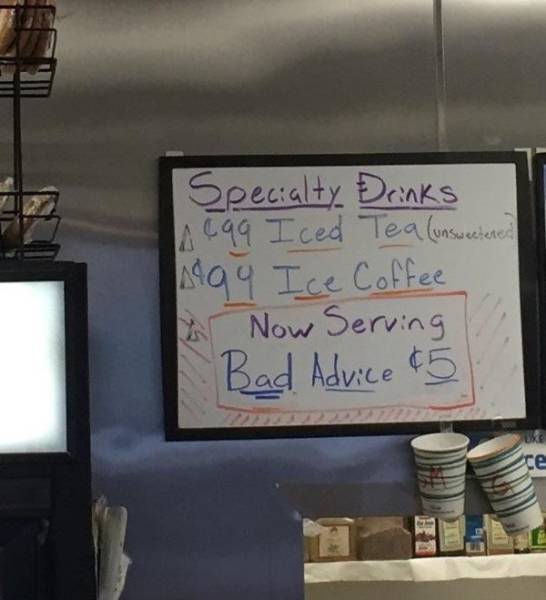 Specialty Drinks
¢99 Iced Tea (unsweetened)
¢99 Ice Coffee
Now Serving
Bad Advice ¢5
M
G